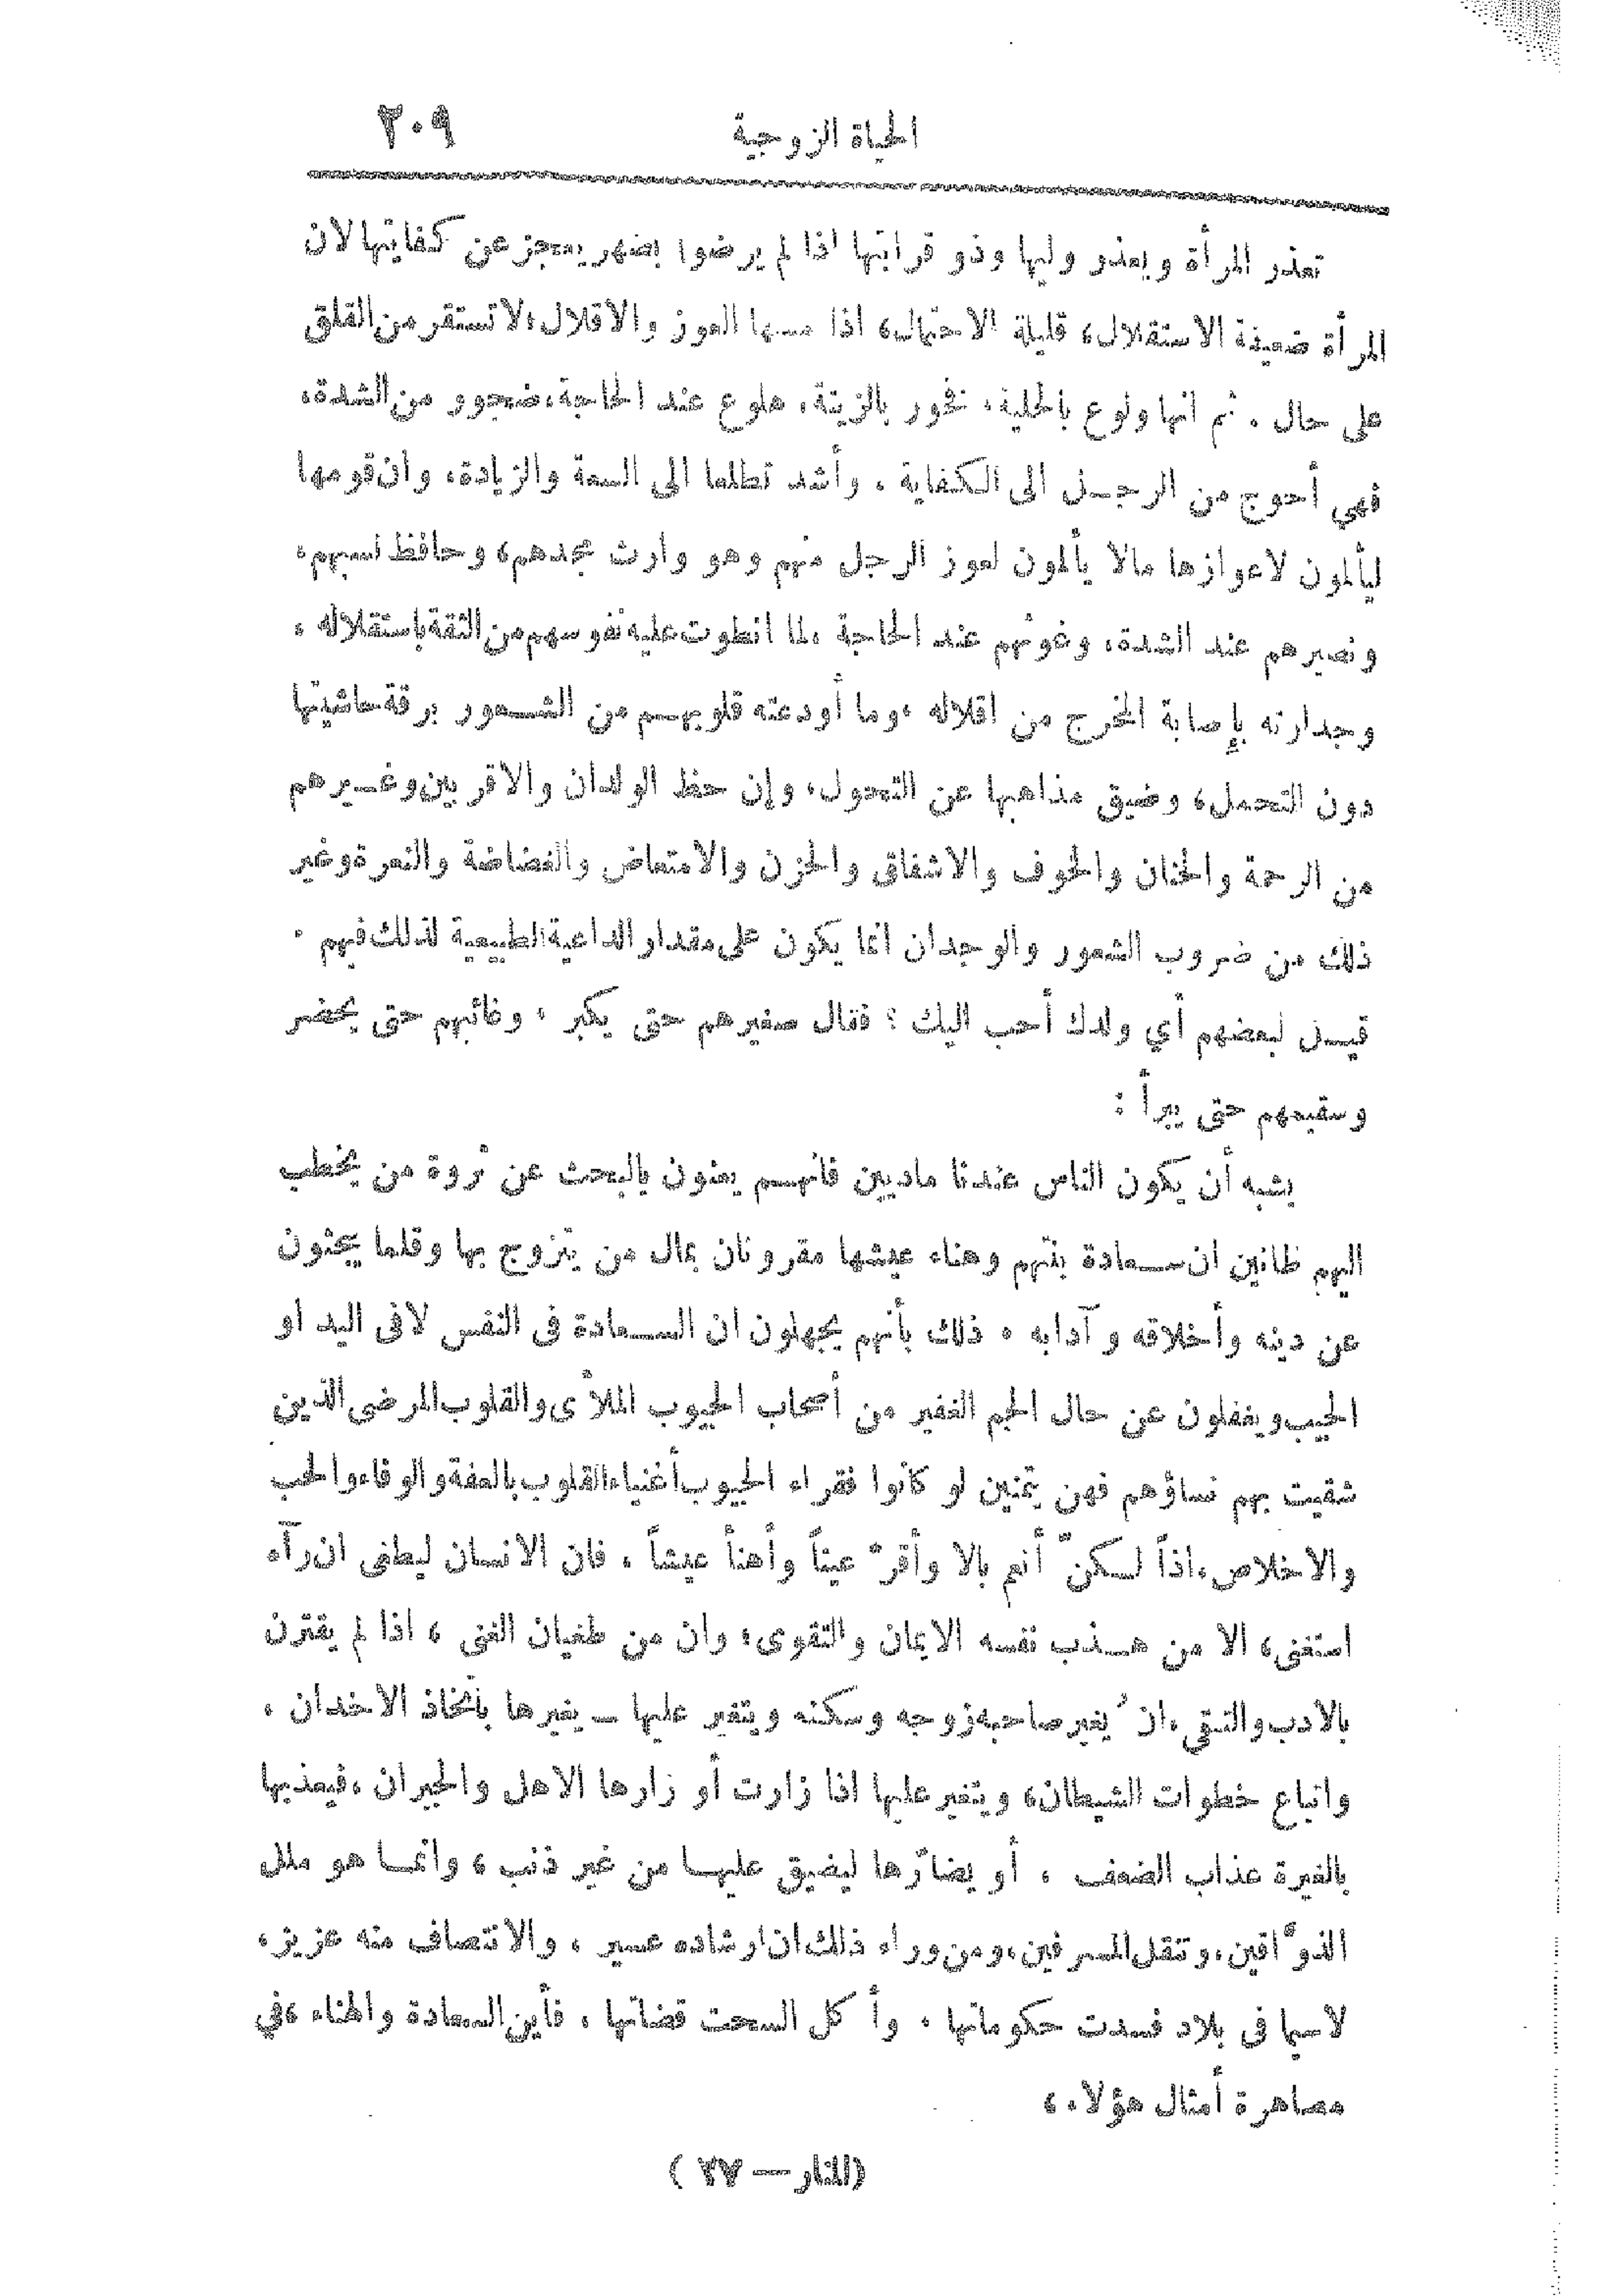 الحياة الزوجية ٢٠٩
تعذر المرأة ويعذر وليها وذو قرابتها اذا لم يرضوا بصهر يعجز عن كفايتها لان
المرأة ضعيفة الاستقلال، قليلة الاحتمال، اذا مسها العوز والاقلال، لا تستقر من القلق
على حال . ثم انها ولوع بالحلية، فخور بالزينة، هلوع عند الحاجة، ضجور من الشدة،
فهي أحوج من الرجل الى الكفاية ، وأشد تطلعا الى السعة والزيادة، وان قومها
ليألمون لاعوازها مالا يألمون لعوز الرجل منهم وهو وارث مجدهم، وحافظ نسبهم،
ونصيرهم عند الشدة، وغوثهم عند الحاجة ، لما انطوت عليه نفوسهم من الثقة باستقلاله ،
وجدارته بإصابة المخرج من اقلاله ، وما أودعته قلوبهم من الشعور برقة حاشيتها
دون التحمل، وضيق مذاهبها عن التحول، وإن حظ الولدان والاقربين وغيرهم
من الرحمة والحنان والخوف والاشفاق والحزن والامتعاض والغضاضة والنعرة وغير
ذلك من ضروب الشعور والوجدان انما يكون على مقدار الداعية الطبيعية لذلك فيهم .
قيل لبعضهم أي ولدك أحب اليك ؟ فقال صغيرهم حتى يكبر ، وغائبهم حتى يحضر
وسقيمهم حتى يبرأ :
يشبه أن يكون الناس عندنا ماديين فانهم يعنون بالبحث عن ثروة من يخطب
اليهم ظانين ان سعادة بنتهم وهناء عيشها مقرونان بمال من يتزوج بها وقلما يبحثون
عن دينه وأخلاقه وآدابه . ذلك بأنهم يجهلون ان السعادة فى النفس لا فى اليد او
الجيب ويغفلون عن حال الجم الغفير من أصحاب الجيوب الملأى والقلوب المرضى الذين
شقيت بهم نساؤهم فهن يتمنين لو كانوا فقراء الجيوب أغنياء القلوب بالعفة والوفاء والحب
والاخلاص، اذاً لكنّ أنعم بالا وأقرّ عيناً وأهنأ عيشاً ، فان الانسان ليطغى ان رآه
استغنى، الا من هذب نفسه الايمان والتقوى، وان من طغيان الغنى ، اذا لم يقترن
بالادب والتقى، ان يُغير صاحبه زوجه وسكنه ويتغير عليها ــ يغيرها باتخاذ الاخدان ،
واتباع خطوات الشيطان، ويتغير عليها اذا زارت أو زارها الاهل والجيران ، فيعذبها
بالغيرة عذاب الضعف ، أو يضارّها ليضيق عليها من غير ذنب ، وانما هو ملل
الذوّاقين، وتنقل المسرفين، ومن وراء ذلك ان ارشاده عسير ، والانتصاف منه عزيز،
لاسيما فى بلاد فسدت حكوماتها ، وأكل السحت قضاتها ، فأين السعادة والهناء ، في
مصاهرة أمثال هؤلاء ،
(المنار — ٢٧ )